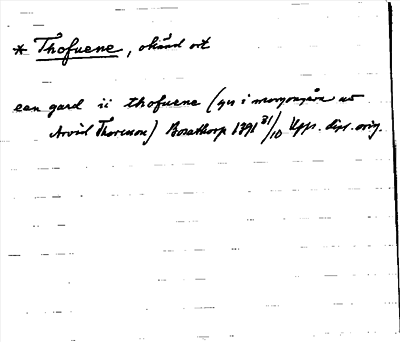 * Thofuene, okänd ort
een gard ii thofuene (gês i morgongåva av
Arvid Thoresson) Bosathorp 1391 31/10 Upps. dipl. orig.